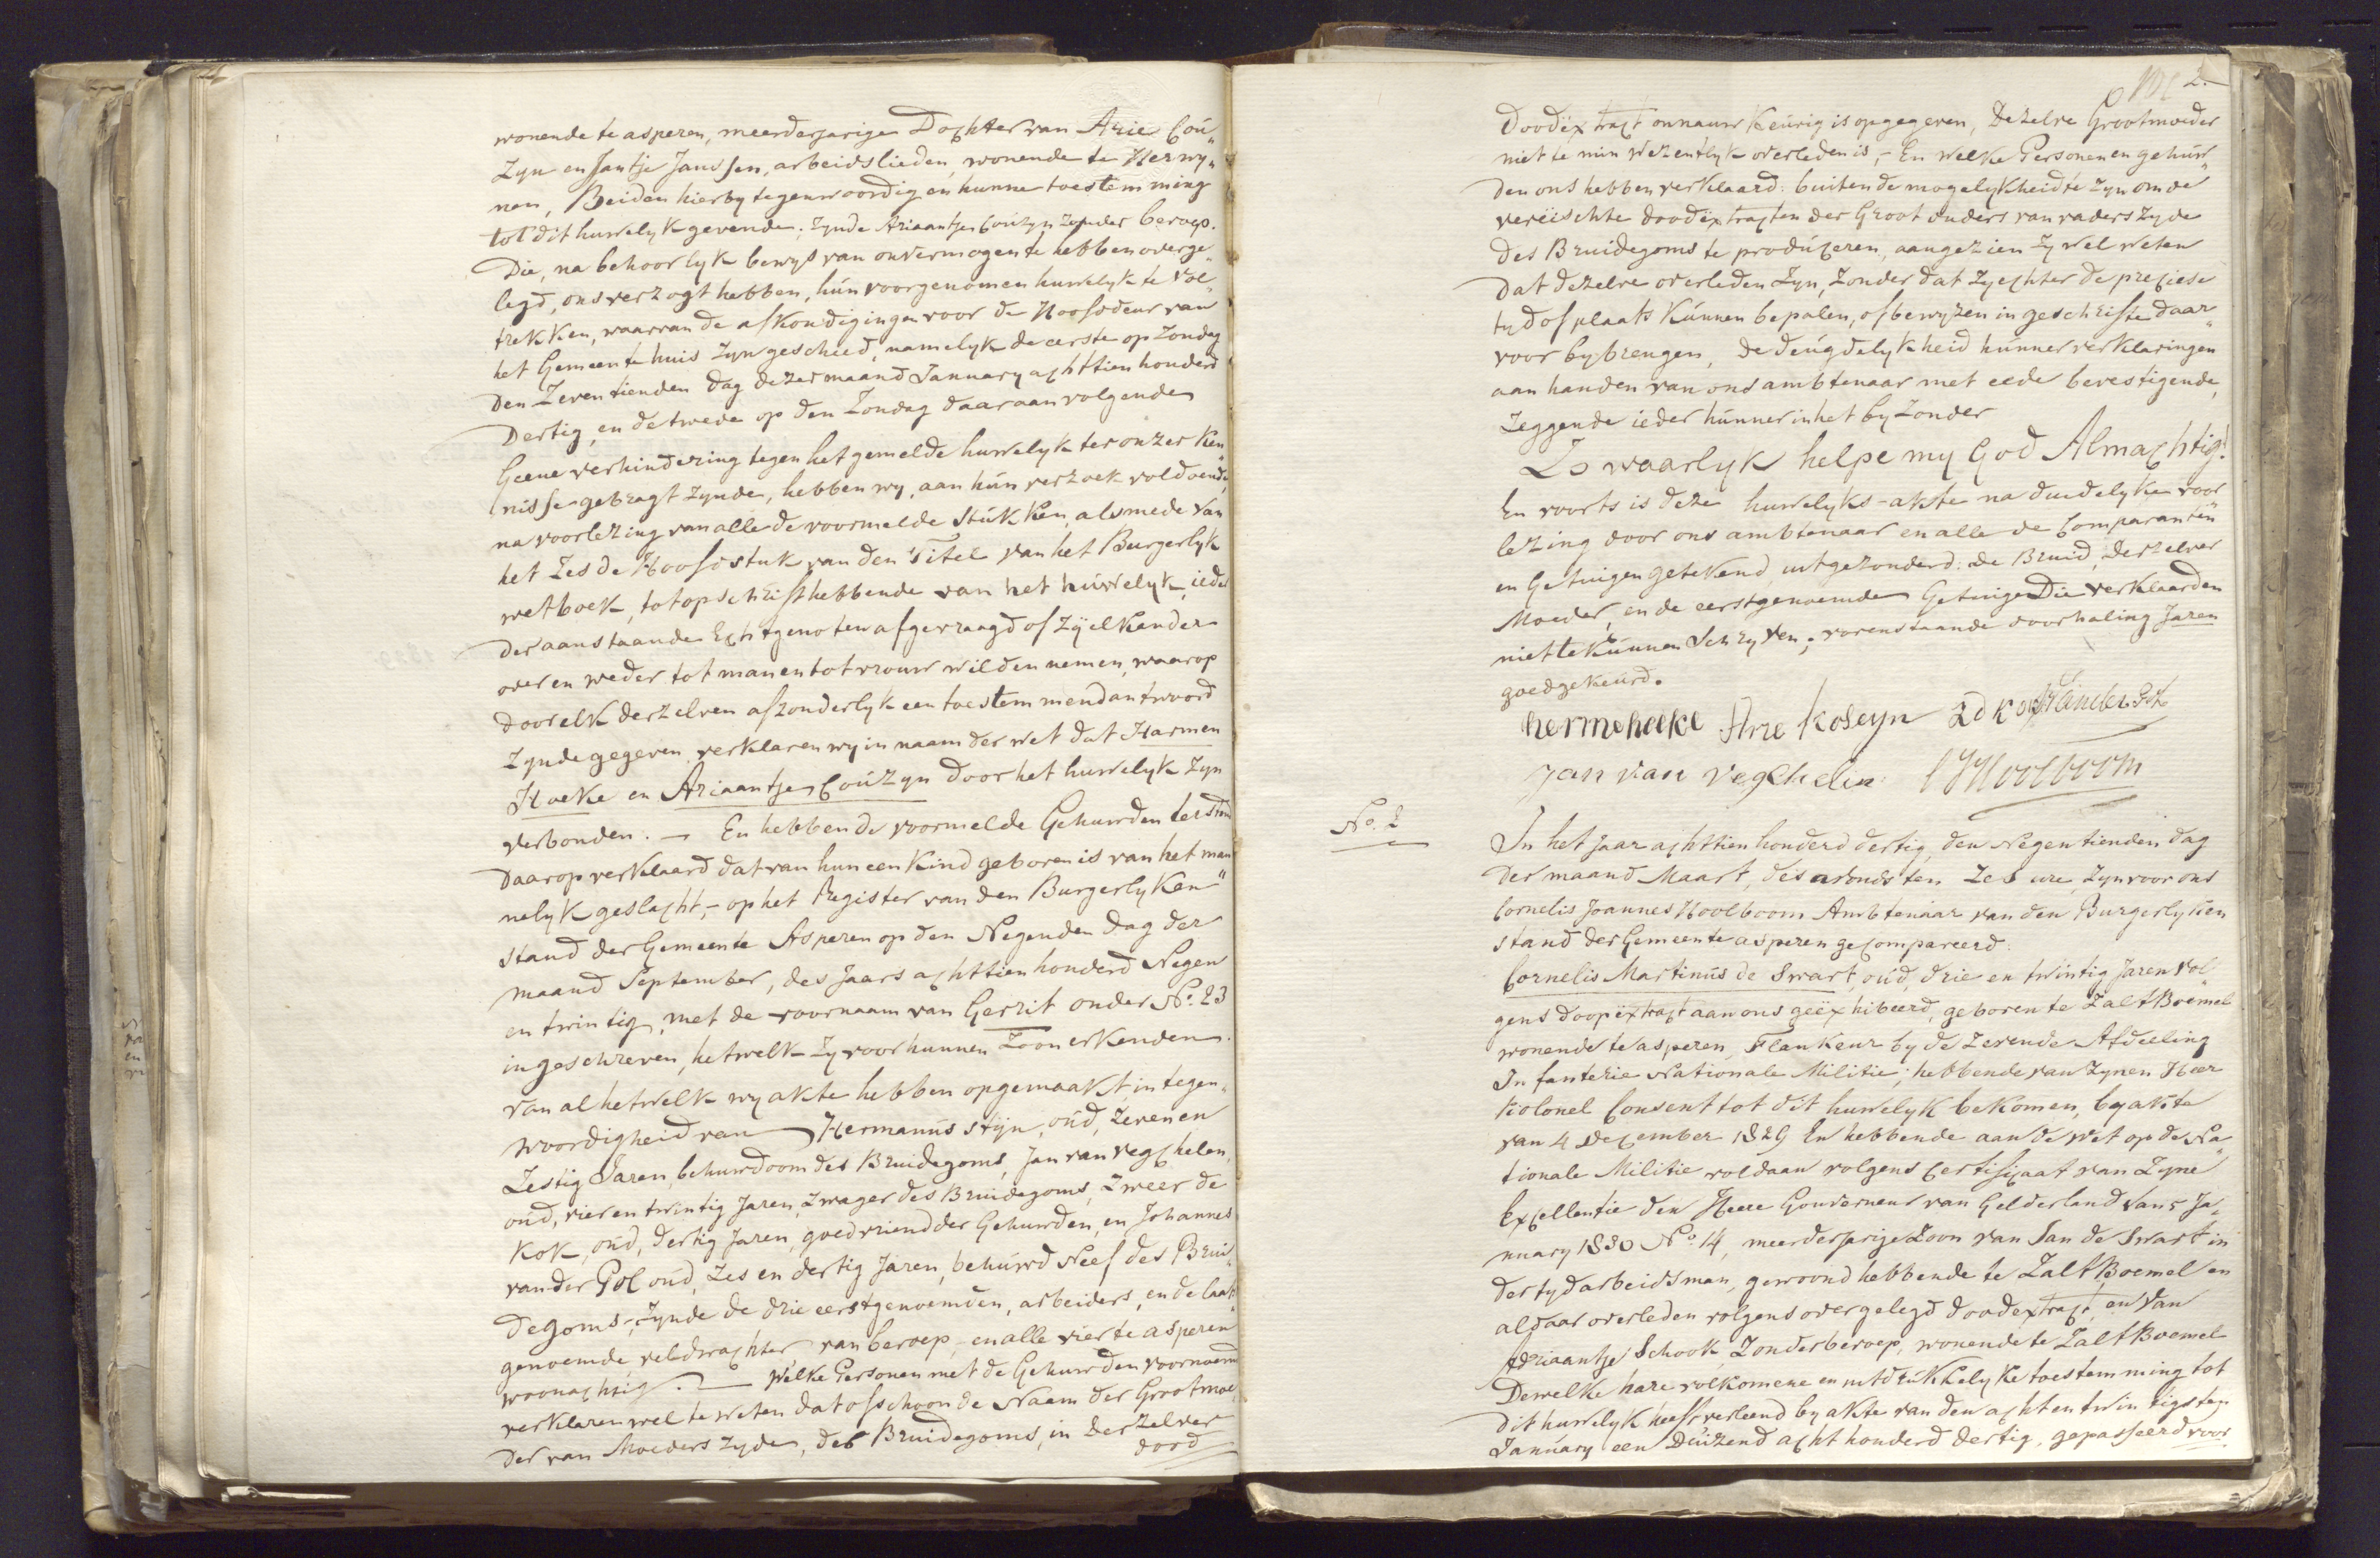 wonende te asperen, meerderjarige Dochter van Arie Cou„
Zyn en Jantje Janssen, arbeidslieden, wonende te Herwy„
nen, Beiden hierby tegenwoordig en hunne toestemming
tot dit huwelyk gevende; zynde Ariaantje Coúzyn zonder beroep.
Die, na behoorlyk bewys van onvermogen te hebben overge„
legd, ons verzogt hebben, hún voorgenomen huwelyk te vol„
trekken, waarvan de afkondigingen voor de Hoofddeur van
het Gemeente huis zyn geschied, namelyk de eerste op Zondag
den Zeventienden dag dezer maand January achttien honderd
Dertig, en de twede op den Zondag daaraanvolgende
Geene verhindering tegen het gemelde huwelyk ter onzer ken„
nisse gebragt zynde, hebben wy, aan hún verzoek voldoende,
na voorlezing van alle de voormelde Stukken, alsmede van
het Zesde Hoofdstuk van den Titel van het Burgerlyk
wetboek, tot opschrift hebbende van het húwelyk, ieder
der aanstaande Echtgenoten afgevraagd of Zÿ elkander
over en weder tot man en tot vrouw wilden nemen, waarop
door elk derzelven afzonderlyk een toestemmend antwoord
zynde gegeven, verklaren wy in naam der wet dat Harmen
Hoeke en Ariaantje Coúzyn door het huwelyk zyn
verbonden. — En hebben de voormelde Gehuwden terstond
daarop verklaard dat van hun een Kind geboren is van het man„
nelyk geslacht, - op het Register van den Burgerlyken
stand der Gemeente Asperen op den Negenden dag der
maand September, des Jaars achttien honderd Negen
en twintig, met de voornaam van Gerrit onder No. 23
ingeschreven, hetwelk zy voor hunnen Zoon erkenden.
Van al hetwelk wy akte hebben opgemaakt, in tegen„
woordigheid van Hermanús Stijn, oúd, zeven en
Zestig Jaren, behuwdoom des Bruidegoms, Jan van Vegchelen,
oúd, vier en twintig Jaren, zwager des Bruidegoms, Zweer de
Kok, oúd, dertig Jaren, goedvriend der Gehuwden, en Johannes
van der Pol oúd, zes en dertig Jaren, behúwd Neef des Brui„
degoms, - zynde de drie eerstgenoemden, arbeiders, en de laatst„
genoemde, veldwachter van beroep, - en alle vier te asperen
woonachtig. — Welke Personen met de Gehuwden voornoemd
verklaren wel te weten dat ofschoon de Naam der Grootmoe„
der van Moeders zyde, des Bruidegoms, in derzelver
dood
2.
Doodëxtract onnauwkeúrig is opgegeven, dezelve Grootmoeder
niet te min wezentlyk overleden is, - En welke Personen en gehúw„
den ons hebben verklaard: buiten de mogelykheid te zyn om de
vereïschte doodëxtracten der Grootouders van vaders zyde
des Bruidegoms te prodúceren, aangezien zy wel weten
Dat dezelve overleden zyn, zonder dat zy echter de preciese
tyd of plaats kúnnen bepalen, of bewyzen in geschrifte daar„
voor bybrengen, de deúgdelykheid húnner verklaringen
aan handen van ons ambtenaar met eede bevestigende,
zeggende ieder húnner in het byzonder
Zo waarlyk helpe my God Almachtig!
En voorts is deze huwelyks-akte na duidelyke voor„
lezing door ons ambtenaar en alle de Comparanten
en Getuigen getekend, uitgezonderd: de Bruid, derzelver
Moeder, en de eerstgenoemde Getuige Die verklaarden
niet te kúnnen Schryven; vorenstaande doorhaling Jaren
goedgekeúrd.
herme hoeke Arie Koseyn Z d Kok J Vander Pol
Jan van vegchelen CJHoolboom
No. 2
In het Jaar achttien honderd dertig, den Negentienden dag
der maand Maart, des avonds ten Zes ure, zyn voor ons
Cornelis Joannes Hoolboom Ambtenaar van den Burgerlyken
stand der Gemeente asperen gecompareerd:
Cornelis Martinús de Swart, oúd, drie en twintig Jaren vol„
gens doopëxtract aan ons geëxhibeerd, geboren te Zalt Boemel
wonende te asperen, Flankeur by de Zevende Afdeeling
Infanterie Nationale Militie; hebbende van zynen Heer
Kolonel Consent tot dit huwelyk bekomen, by akte
van 4 December 1829 En hebbende aan de wet op de Na„
tionale Militie voldaan volgens Certificaat van Zyne
Excellentie den Heere Gouverneur van Gelderland van 5 Ja„
nuary 1830 No. 14, meerderjarige Zoon van Jan de Swart in
der tyd arbeidsman, gewoond hebbende te Zalt Boemel en
aldaar overleden volgens overgelegd doodextract, en van
Adriaantje Schook, Zonder beroep, wonende te Zalt Boemel
Dewelke hare volkomene en uitdrukkelyke toestemming tot
dit huwelyk heeft verleend by akte van den acht en twintigsten
Januáry een Duizend acht honderd dertig, gepasseerd voor